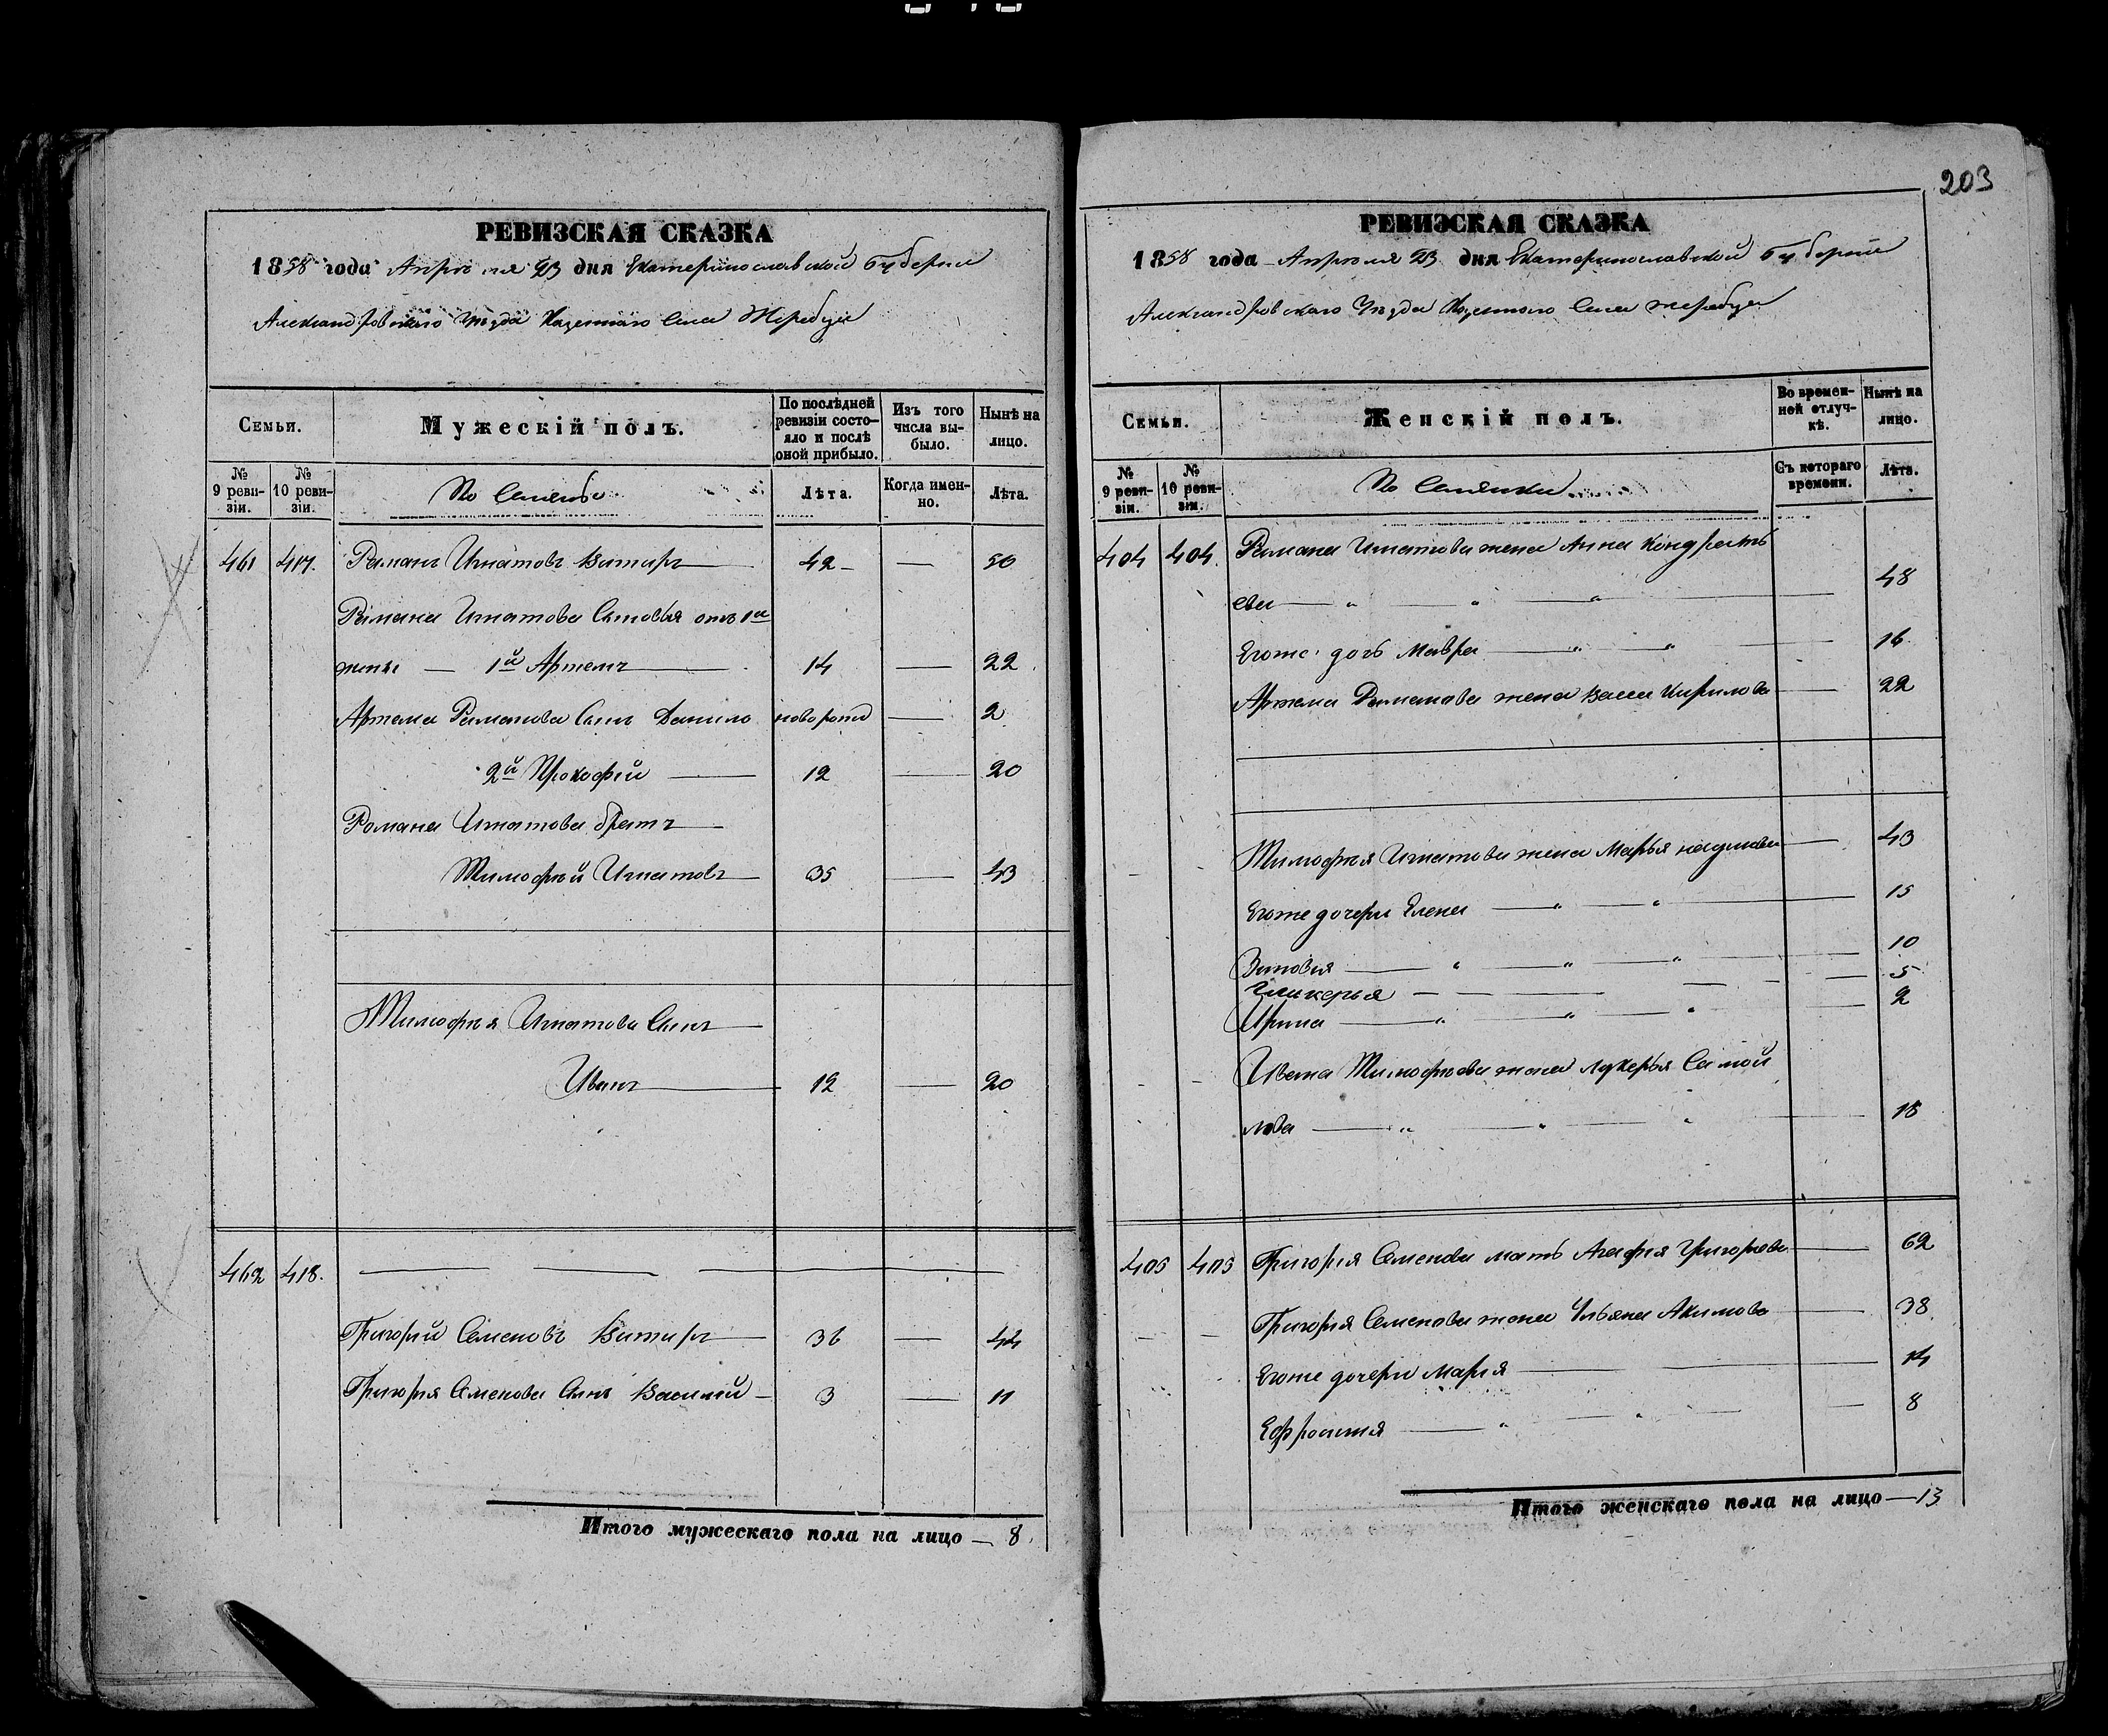 203
РЕВИЗСКАЯ СКАЗКА
1858 года Апреля 23 дня Екатеринославской Губернии
Александровского Уезда Казенного Села Жеребца
Семьи.
Мужескій полъ.
По послѣдней ревизіи состояло и послѣ оной прибыло.
Изъ того числа выбыло.
Нынѣ на лицо.
№ 9 ревизіи.
№ 10 ревизіи.
Лѣта.
Когда именно.
Лѣта.
461 417. Романъ Игнатовъ 42 — 50
Романа Игнатова Сыновья отъ 1й
жены — 1й Артемъ 14 — 22
Артема Романова Сынъ Данило новорожд — 2
2й Прокофій — 12 — 20
Романа Игнатова братъ
Тимофей Игнатовъ 35 — 43
Тимофея Игнатова Сынъ
Иванъ 12 — 20
462 418.
Григорій Семеновъ 36 — 44
Григорія Семенова Сынъ Василий 3 — 11
Итого мужескаго пола на лицо — 8.
РЕВИЗСКАЯ СКАЗКА
1858 года Апреля 23 дня Екатеринославской Губернии
Александровского Уезда Казенного Села Жеребца
Семьи.
Женскій полъ.
Во временной отлучкѣ.
Нынѣ на лицо.
№ 9 ревизіи.
№ 10 ревизіи.
Съ котораго времени.
Лѣта.
404 404. Романа Игнатова жена Анна Кондрать
ева 48
Егоже дочь Мавра 16
Артема Романова жена Васса Кирилова 22
Тимофея Игнатова жена Марья 43
Егоже дочери Елена 15
Зиновия 10
Гликерья 5
Ирина 2
Ивана Тимофеева жена Лукерья Самой
лова 18
405 405 Григорія Семенова мать Агафия Григорьева 62
Григорія Семенова жена Ульяна Акимова 38
Егоже дочери Мария 14
Ефросиния 8
Итого женскаго пола на лицо — 13